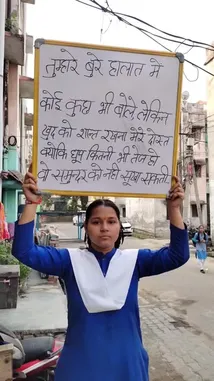 तुम्हारे बुरे हालात में
कोई कुछ भी बोले, लेकिन
खुद को शान्त रखना मेरे दोस्त
क्योंकि धूप कितनी भी तेज हो
वो समुन्दर को नहीं सूखा सकती